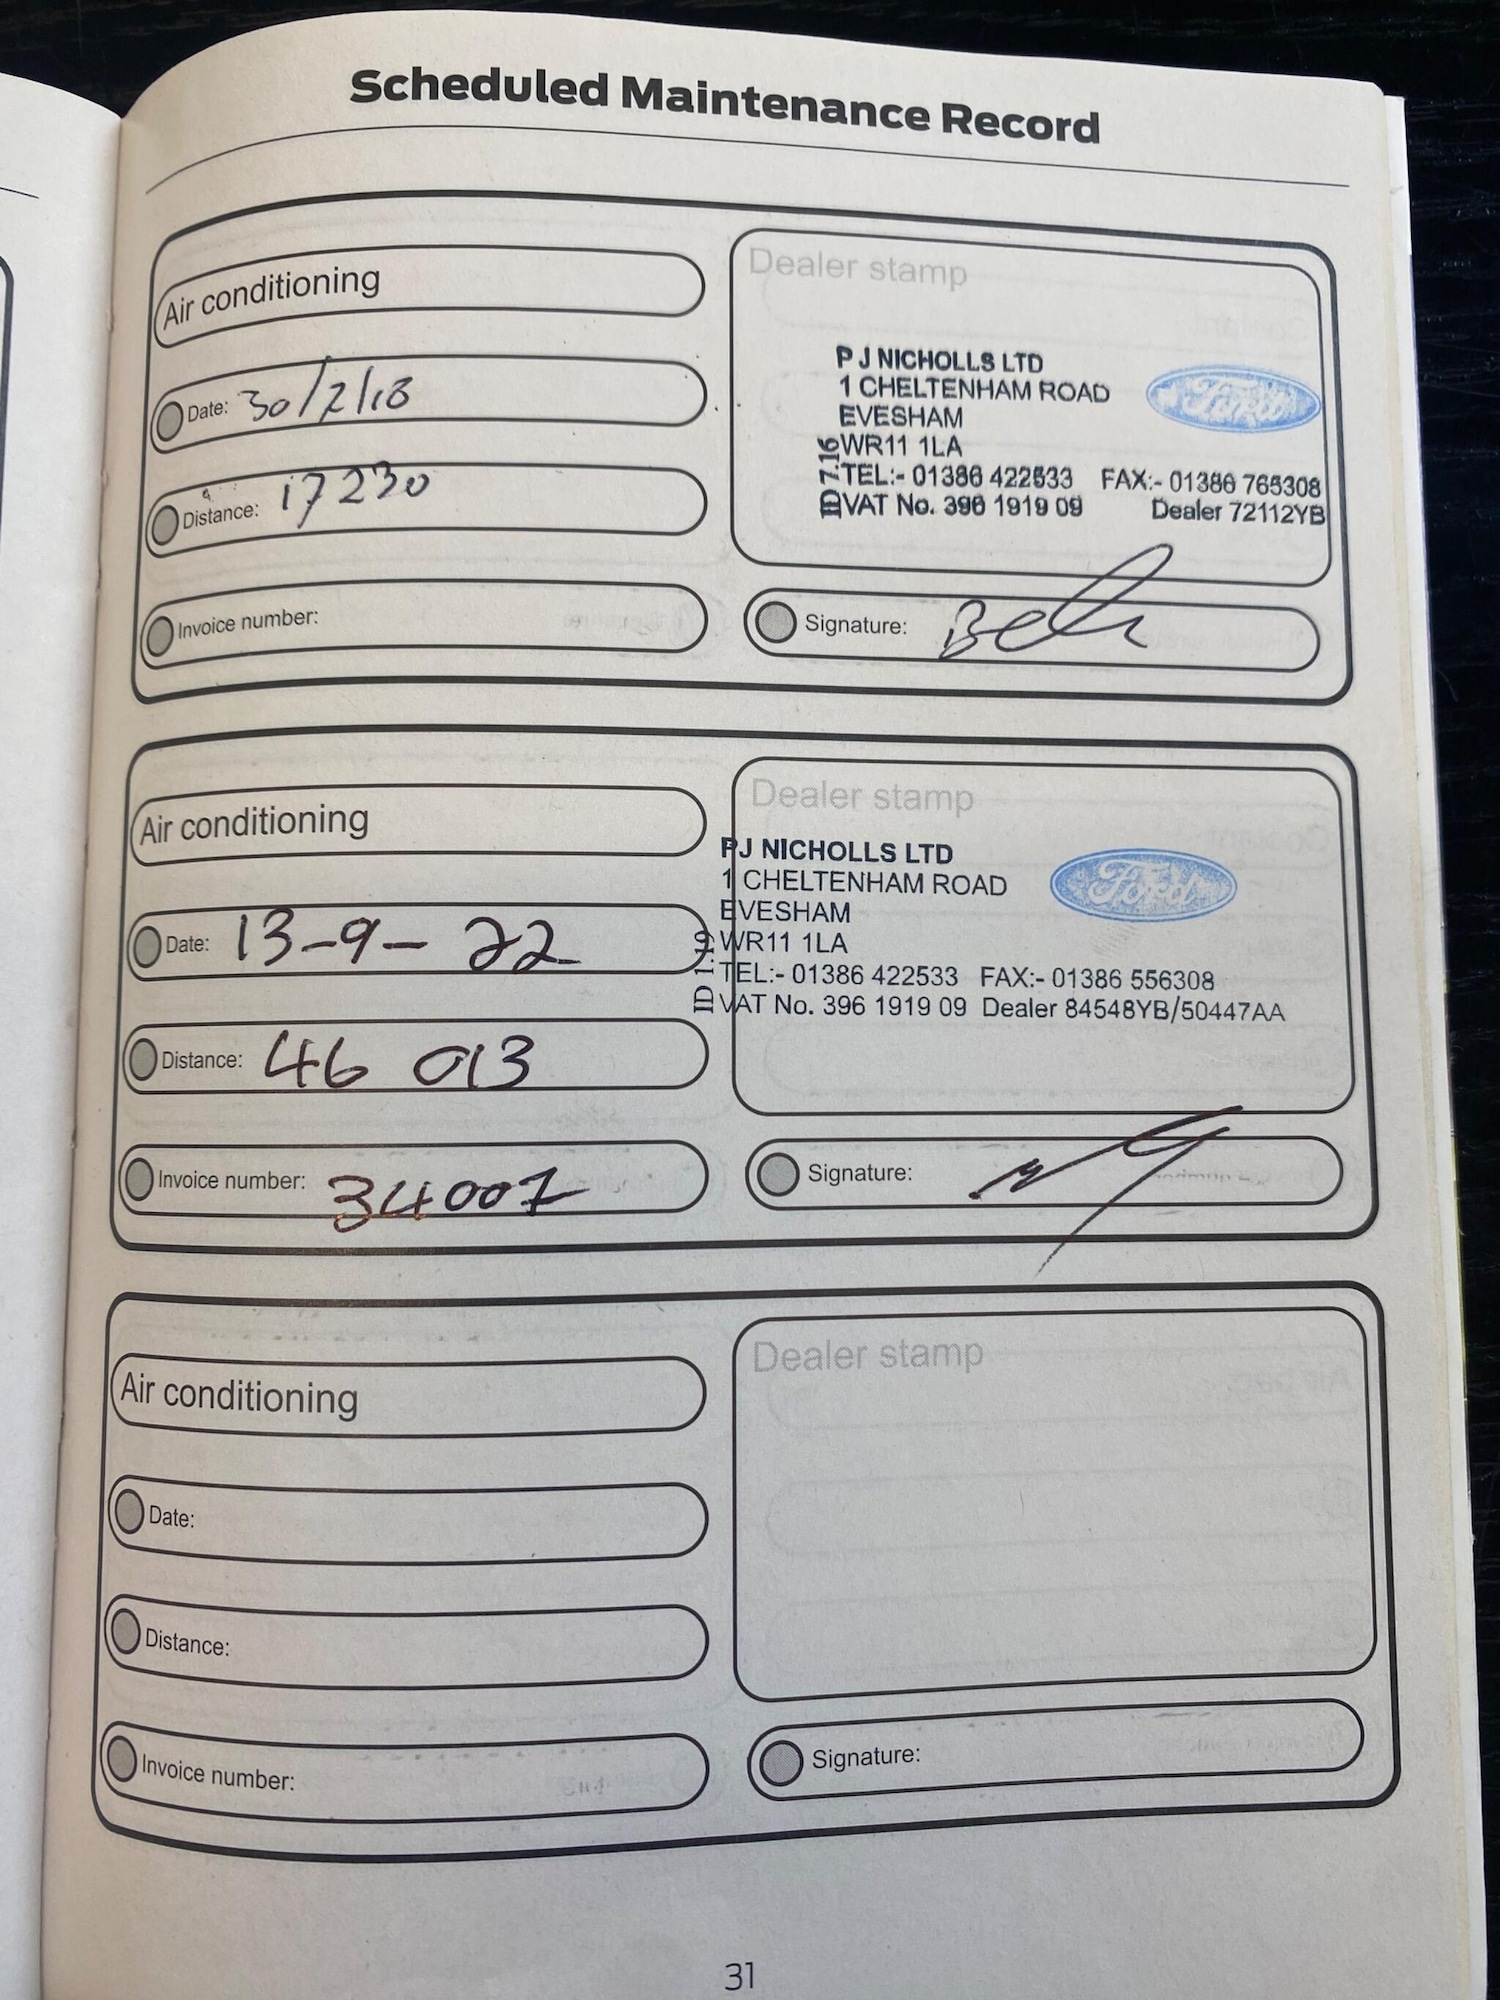 Scheduled Maintenance Record
Air conditioning
Date: 30/7/18
Distance: 17230
Invoice number:
Dealer stamp
P J NICHOLLS LTD
1 CHELTENHAM ROAD
EVESHAM
WR11 1LA
TEL:- 01386 422533 FAX:- 01386 765308
VAT No. 396 1919 09 Dealer 72112YB
ID 7.16
Ford
Signature:
Air conditioning
Date: 13-9-22
Distance: 46 013
Invoice number: 34007
Dealer stamp
PJ NICHOLLS LTD
1 CHELTENHAM ROAD
EVESHAM
WR11 1LA
TEL:- 01386 422533 FAX:- 01386 556308
VAT No. 396 1919 09 Dealer 84548YB/50447AA
ID 1.19
Ford
Signature:
Air conditioning
Date:
Distance:
Invoice number:
Dealer stamp
Signature:
31